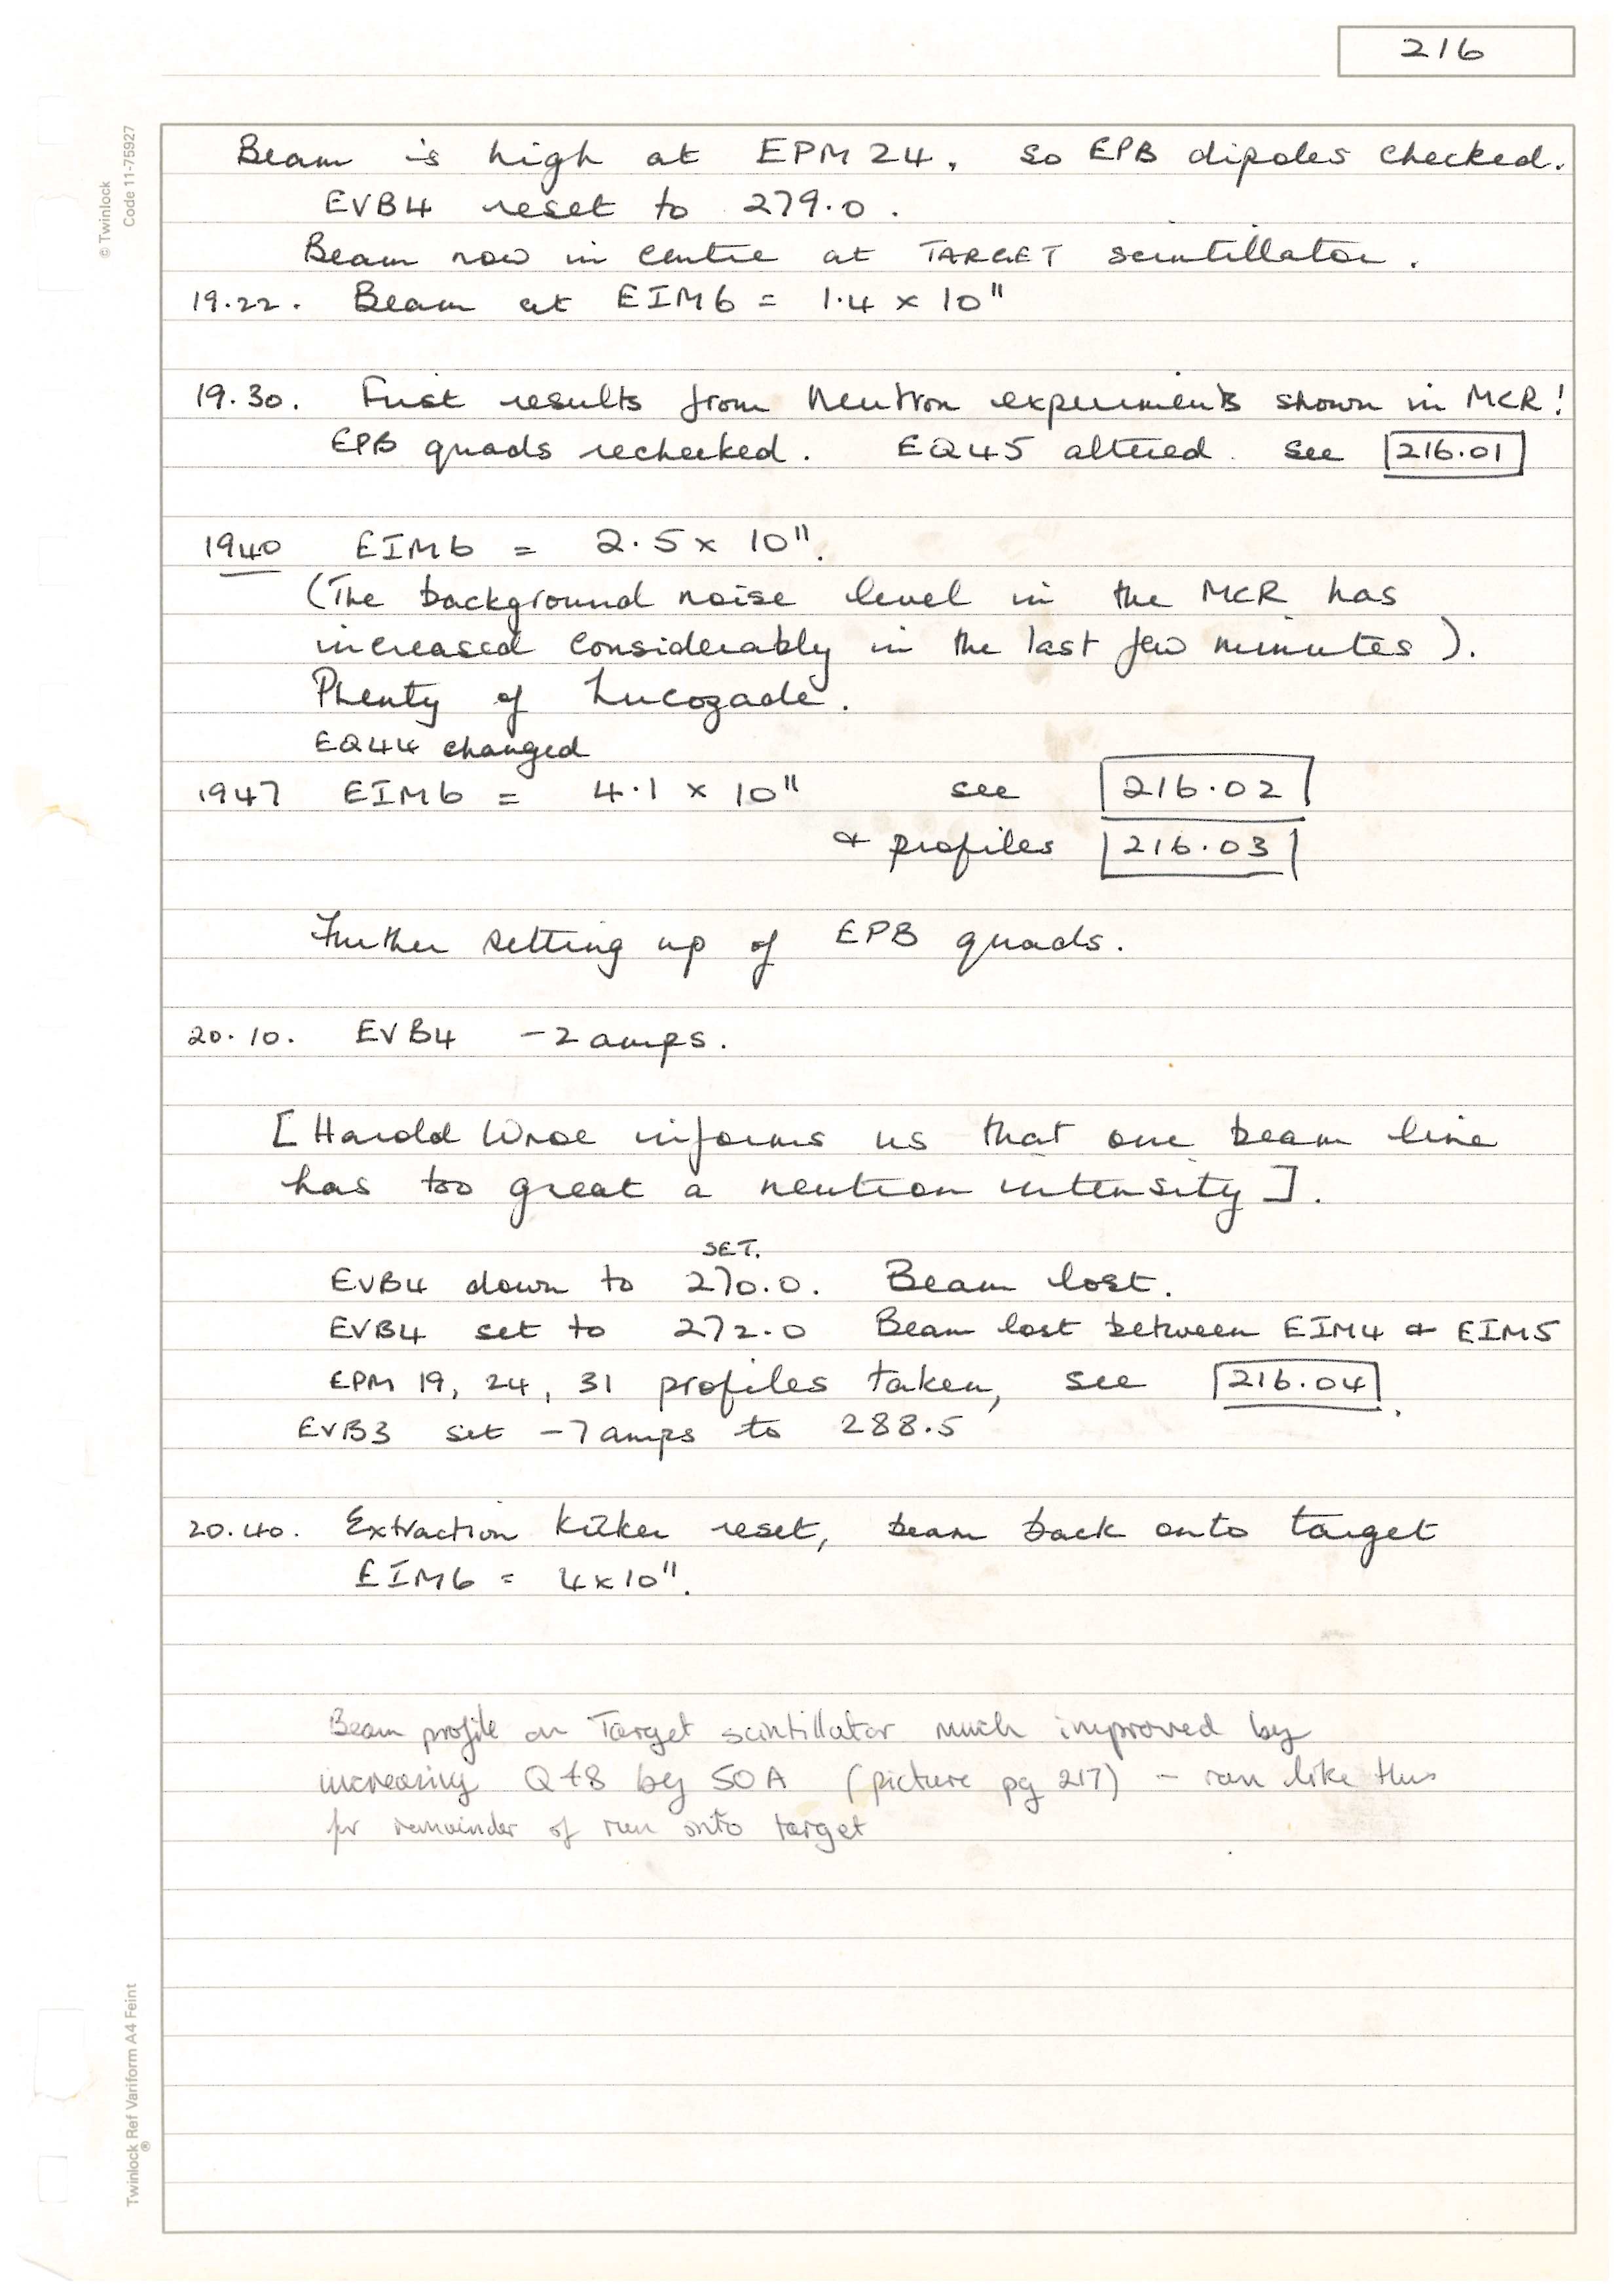 216
© Twinlock
Code 11-75927
Beam is high at EPM 24, so EPB dipoles checked.
EVB4 reset to 279.0.
Beam now in centre at TARGET scintillator.
19.22. Beam at EIM6 = 1.4 x 10¹¹
19.30. First results from Neutron experiments shown in MCR!
EPB quads rechecked. EQ45 altered. see 216.01
1940 EIM6 = 2.5 x 10¹¹.
(The background noise level in the MCR has
increased considerably in the last few minutes).
Plenty of Lucozade.
EQ44 changed
1947 EIM6 = 4.1 x 10¹¹ see 216.02
& profiles 216.03
Further setting up of EPB quads.
20.10. EVB4 -2 amps.
[Harold Wroe informs us that one beam line
has too great a neutron intensity].
SET.
EVB4 down to 270.0. Beam lost.
EVB4 set to 272.0 Beam lost between EIM4 & EIM5
EPM 19, 24, 31 profiles taken, see 216.04.
EVB3 set -7 amps to 288.5
20.40. Extraction kicker reset, beam back onto target
EIM6 = 4x10¹¹.
Beam profile on Target scintillator much improved by
increasing Q48 by 50A (picture pg 217) - ran like this
for remainder of run onto target
Twinlock Ref Variform A4 Feint
®